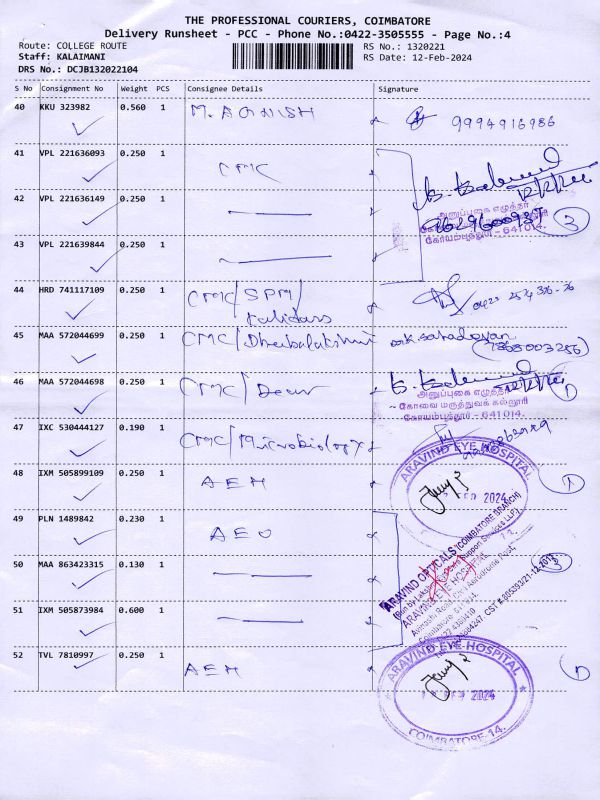 THE PROFESSIONAL COURIERS, COIMBATORE
Delivery Runsheet - PCC - Phone No.:0422-3505555 - Page No.:4
Route: COLLEGE ROUTE RS No.: 1320221
Staff: KALAIMANI RS Date: 12-Feb-2024
DRS No.: DCJB132022104
S No Consignment No Weight PCS Consignee Details Signature
40 KKU 323982 0.560 1 9994916986
41 VPL 221636093 0.250 1 CMC
42 VPL 221636149 0.250 1
அனுப்புகை எழுத்தர்
கோயம்புத்தூர் - 641 014.
3
43 VPL 221639844 0.250 1
44 HRD 741117109 0.250 1 CMC/SPM/
45 MAA 572044699 0.250 1 CMC/
46 MAA 572044698 0.250 1 CMC/Dean
அனுப்புகை எழுத்தர்
கோவை மருத்துவக் கல்லூரி
கோயம்புத்தூர் - 641 014.
1
47 IXC 530444127 0.190 1 CMC/Microbiology
48 IXM 505899109 0.250 1 AEH
ARAVIND EYE HOSPITAL
FEB 2024
1
49 PLN 1489842 0.230 1 AEO
50 MAA 863423315 0.130 1
ARAVIND OPTICALS (COIMBATORE BRANCH)
ARAVIND EYE HOSPITAL
Avinashi Road, Civil Aerodrome Post,
Coimbatore - 641 014.
3
51 IXM 505873984 0.600 1
52 TVL 7810997 0.250 1 AEH
ARAVIND EYE HOSPITAL
FEB 2024
COIMBATORE-14.
1